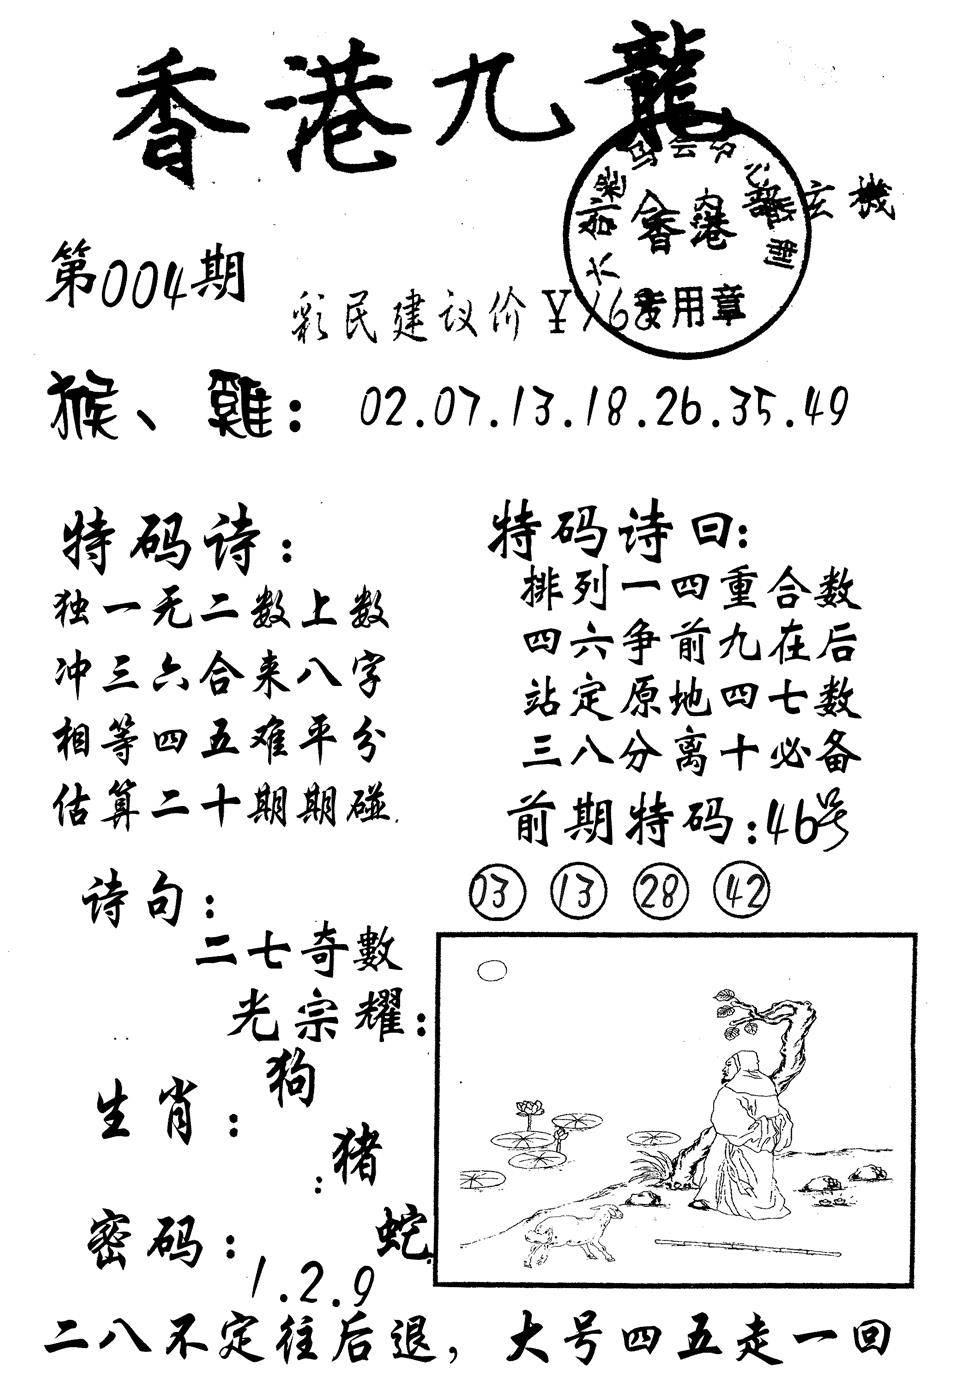 香港九龍
香港 内部玄機
专用章
第004期
彩民建议价¥168
猴、雞：02.07.13.18.26.35.49
特码诗：
独一无二数上数
冲三六合来八字
相等四五难平分
估算二十期期碰
特码诗曰：
排列一四重合数
四六争前九在后
站定原地四七数
三八分离十必备
前期特码：46号
03 13 28 42
诗句：
二七奇數
光宗耀：
生肖：
狗
猪
蛇
密码：
1.2.9
二八不定往后退，大号四五走一回